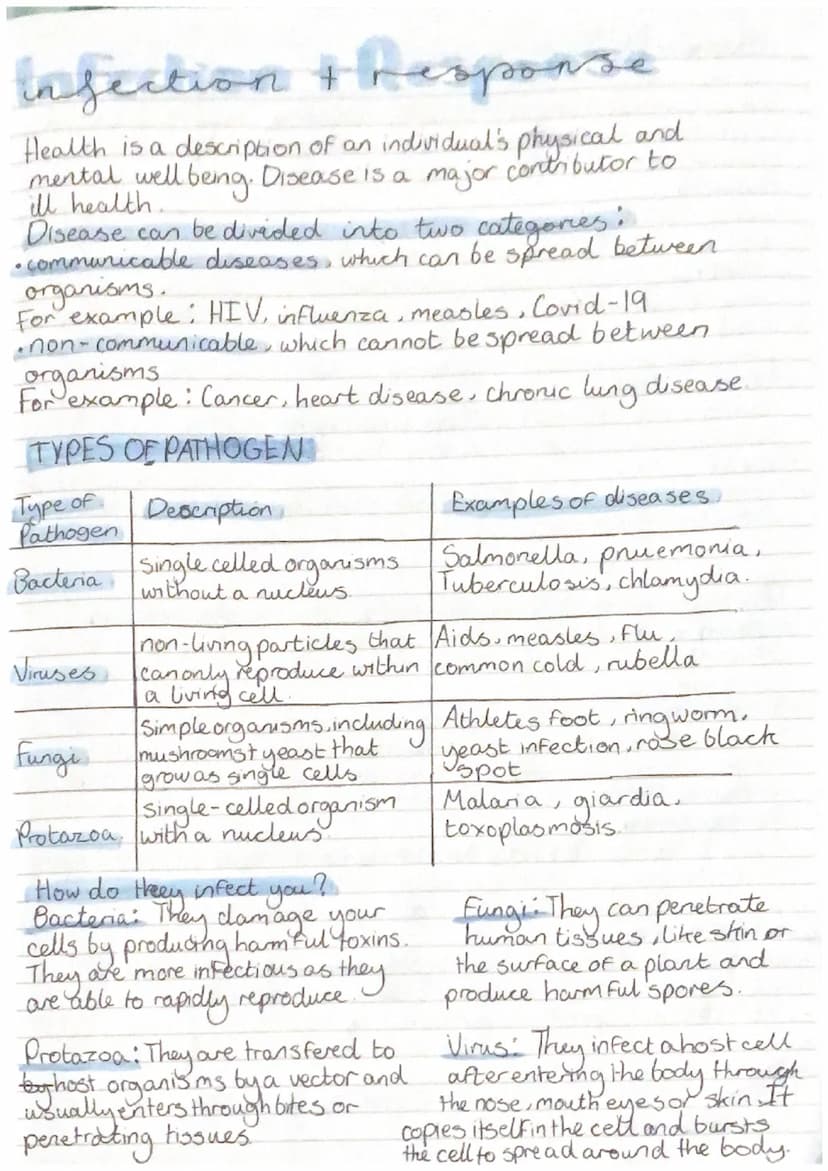 Infection + Response
Health is a description of an individual's physical and
mental well being. Disease is a major contributor to
ill health.
Disease can be divided into two categories:
•communicable diseases, which can be spread between
organisms.
For example: HIV, influenza, measles, Covid-19
•non-communicable, which cannot be spread between
organisms
For example: Cancer, heart disease, chronic lung disease.
TYPES OF PATHOGEN
Type of
Pathogen
Description
Examples of diseases
Bacteria
single celled organisms
without a nucleus.
Salmonella, pnuemonia,
Tuberculosis, chlamydia.
Viruses
non-living particles that
can only reproduce within
a living cell.
Aids, measles, flu,
common cold, rubella
Fungi
Simple organisms, including
mushrooms + yeast that
grow as single cells
Athletes foot, ringworm,
yeast infection, rose black
spot
Protazoa
single-celled organism
with a nucleus.
Malaria, giardia,
toxoplasmosis.
How do they infect you?
Bacteria: They damage your
cells by producing harmful toxins.
They are more infectious as they
are able to rapidly reproduce.
Fungi: They can penetrate
human tissues, like skin or
the surface of a plant and
produce harmful spores.
Protazoa: They are transfered to
host organisms by a vector and
usually enters through bites or
penetrating tissues.
Virus: They infect a host cell
after entering the body through
the nose, mouth eyes or skin. It
copies itself in the cell and bursts
the cell to spread around the body.